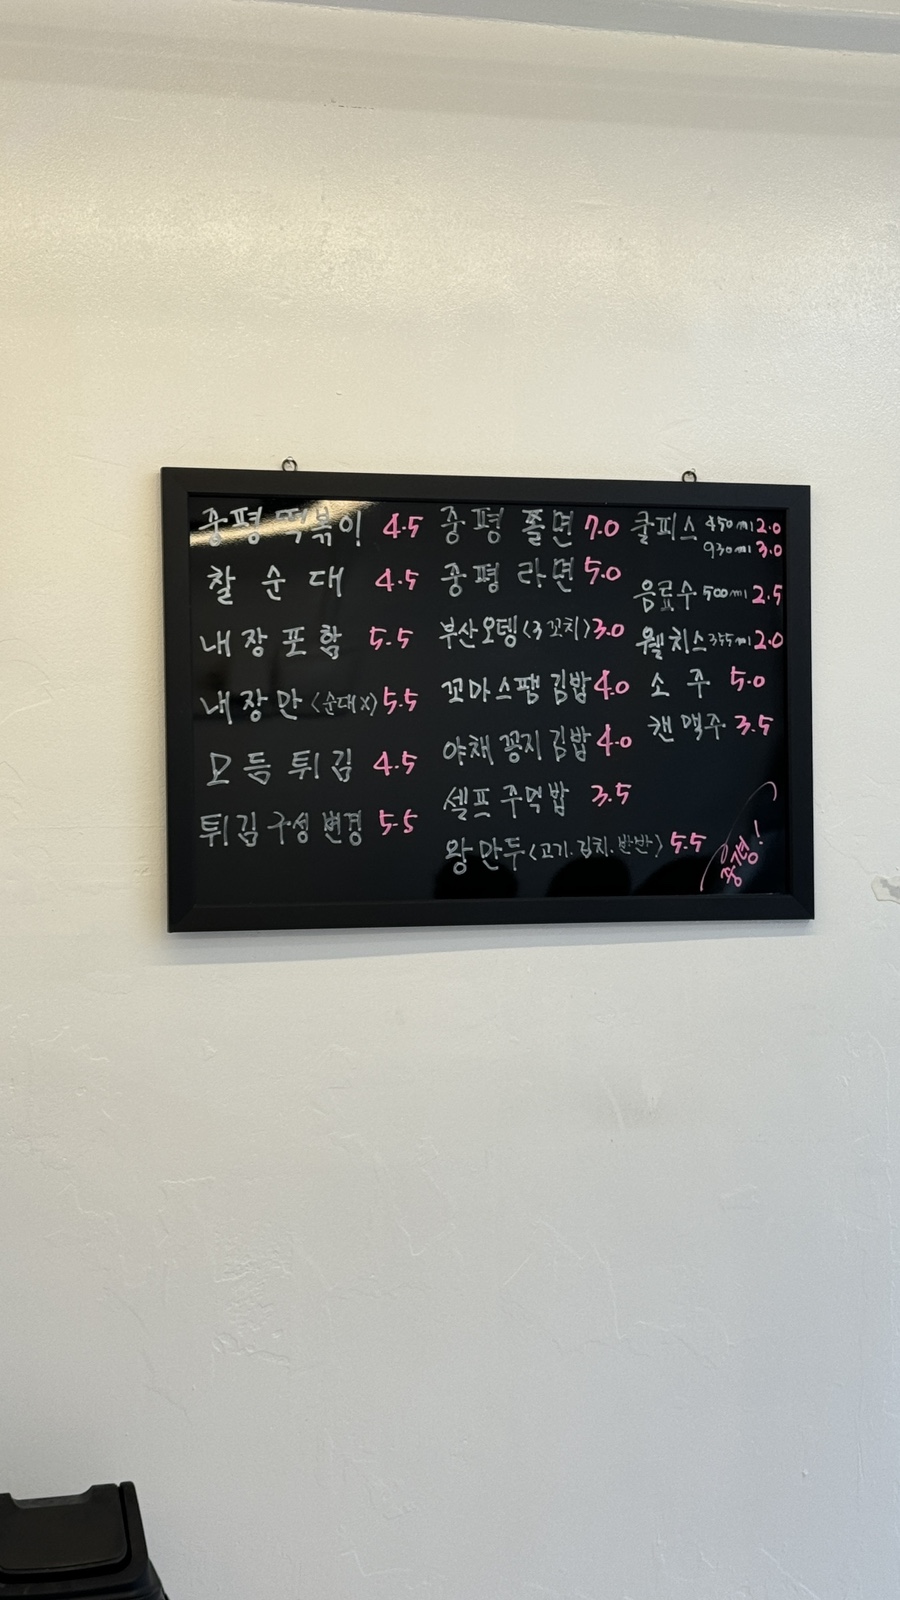 중평 떡볶이 4.5
찰순대 4.5
내장포함 5.5
내장만 <순대X> 5.5
모듬튀김 4.5
튀김구성 변경 5.5
중평 쫄면 7.0
중평 라면 5.0
부산오뎅 <3꼬치> 3.0
꼬마스팸김밥 4.0
야채꽁지김밥 4.0
셀프주먹밥 3.5
왕만두 <고기.김치.반반> 5.5
쿨피스 450ml 2.0
930ml 3.0
음료수 500ml 2.5
웰치스 355ml 2.0
소주 5.0
캔맥주 3.5